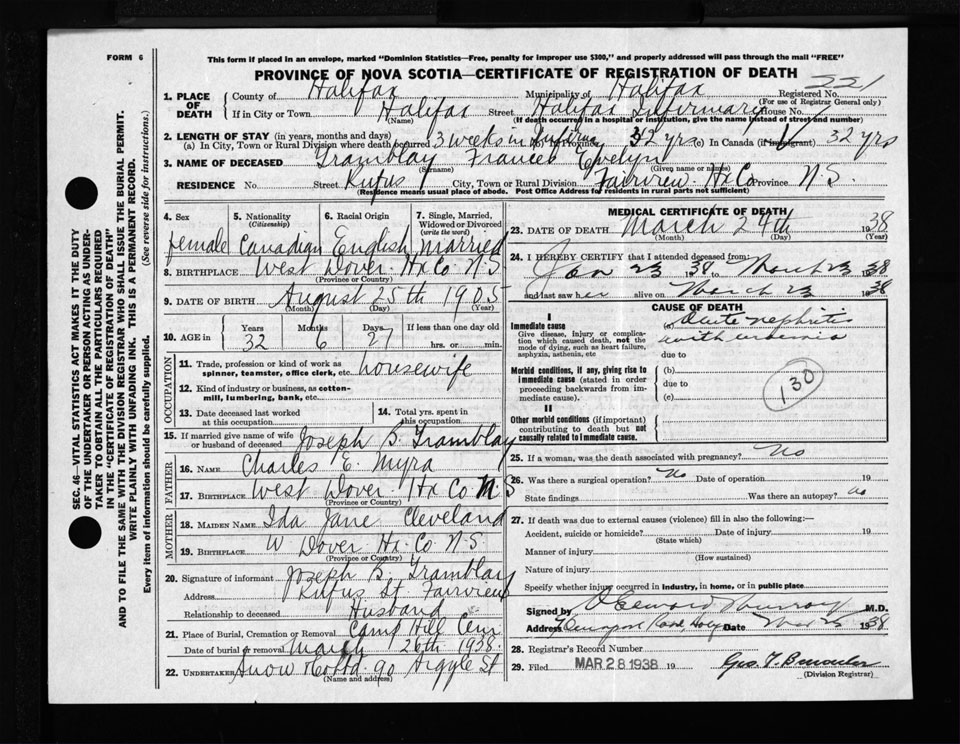 FORM 6
This form if placed in an envelope, marked "Dominion Statistics—Free, penalty for improper use $300," and properly addressed will pass through the mail "FREE"
PROVINCE OF NOVA SCOTIA—CERTIFICATE OF REGISTRATION OF DEATH
221
1. PLACE OF DEATH County of Halifax Municipality of Halifax Registered No.
(For use of Registrar General only)
If in City or Town Halifax Street Halifax Infirmary House No.
(Name) (If death occurred in a hospital or institution, give the name instead of street and number)
2. LENGTH OF STAY (in years, months and days)
(a) In City, Town or Rural Division where death occurred 3 weeks in (b) Province 32 yrs (c) In Canada (if immigrant) 32 yrs
3. NAME OF DECEASED Tramblay Frances Evelyn
(Surname) (Given name or names)
RESIDENCE No. Street Rufus City, Town or Rural Division Fairview Hx Co Province N.S.
(Residence means usual place of abode. Post Office Address for residents in rural parts not sufficient)
4. Sex 5. Nationality (Citizenship) 6. Racial Origin 7. Single, Married, Widowed or Divorced (write the word)
female Canadian English Married
8. BIRTHPLACE West Dover Hx Co N S
(Province or Country)
9. DATE OF BIRTH August 25th 1905
(Month) (Day) (Year)
10. AGE in Years Months Days If less than one day old
32 6 27 hrs. or min.
OCCUPATION
11. Trade, profession or kind of work as spinner, teamster, office clerk, etc. housewife
12. Kind of industry or business, as cotton-mill, lumbering, bank, etc.
13. Date deceased last worked at this occupation
14. Total yrs. spent in this occupation
15. If married give name of wife or husband of deceased Joseph B. Tramblay
FATHER
16. NAME Charles E. Myra
17. BIRTHPLACE West Dover Hx Co N S
(Province or Country)
MOTHER
18. MAIDEN NAME Ida Jane Cleveland
19. BIRTHPLACE W Dover Hx. Co N.S
(Province or Country)
20. Signature of informant Joseph B. Tramblay
Address Rufus St. Fairview
Relationship to deceased Husband
21. Place of Burial, Cremation or Removal Camp Hill Cem
Date of burial or removal March 26th 1938
22. UNDERTAKER Snow & Co Ltd. 90 Argyle St
(Name and address)
MEDICAL CERTIFICATE OF DEATH
23. DATE OF DEATH March 24th 1938
(Month) (Day) (Year)
24. I HEREBY CERTIFY that I attended deceased from:
Jan 23 1938 to March 23 1938
and last saw her alive on March 23 1938
CAUSE OF DEATH
I
Immediate cause
Give disease, injury or complication which caused death, not the mode of dying, such as heart failure, asphyxia, asthenia, etc
(a) Acute nephritis
with uraemia
due to
Morbid conditions, if any, giving rise to immediate cause (stated in order proceeding backwards from immediate cause).
(b)
due to
(c)
130
II
Other morbid conditions (if important) contributing to death but not causally related to immediate cause.
25. If a woman, was the death associated with pregnancy? No
26. Was there a surgical operation? No Date of operation 19
State findings Was there an autopsy? no
27. If death was due to external causes (violence) fill in also the following:—
Accident, suicide or homicide? Date of injury 19
(State which)
Manner of injury
(How sustained)
Nature of injury
Specify whether injury occurred in industry, in home, or in public place
Signed by Seward Murray M.D.
Address Date Mar 25 1938
28. Registrar's Record Number
29. Filed MAR 28 1938 19 Geo. T.
(Division Registrar)
SEC. 46—VITAL STATISTICS ACT MAKES IT THE DUTY
OF THE UNDERTAKER OR PERSON ACTING AS UNDER-
TAKER TO OBTAIN ALL THE PARTICULARS REQUIRED
IN THE "CERTIFICATE OF REGISTRATION OF DEATH"
AND TO FILE THE SAME WITH THE DIVISION REGISTRAR WHO SHALL ISSUE THE BURIAL PERMIT.
WRITE PLAINLY WITH UNFADING INK. THIS IS A PERMANENT RECORD.
Every item of information should be carefully supplied. (See reverse side for instructions.)